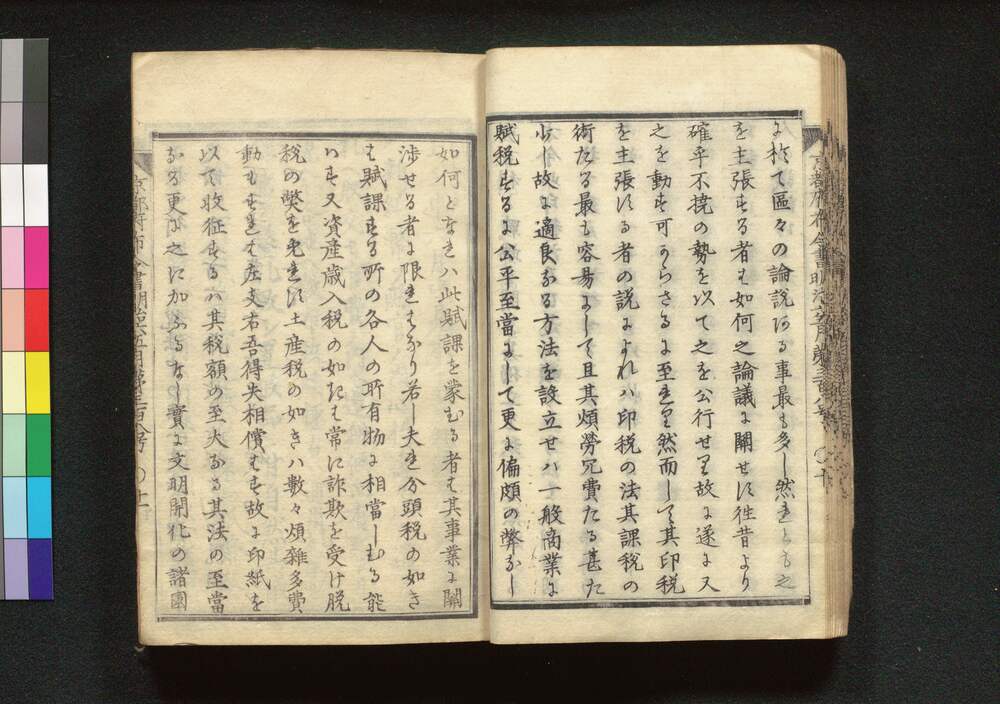 に於て區々の論説ある事最も多し然れとも之
を主張する者も如何之論議に關せす徃昔より
確乎不撓の勢を以て之を公行せり故に遂に又
之を動す可からさるに至れり然而して其印税
を主張する者の説によれハ印税の法其課税の
術たる最も容易にして且其煩勞冗費たる甚た
少し故に適良なる方法を設立せハ一般商業に
賦税するに公平至當にして更に偏頗の弊なし
京都府布令書明治六年五月第三百八号 〇十
如何となれハ此賦課を蒙むる者は其事業に關
渉せる者に限れはなり若し夫れ分頭税の如き
は賦課する所の各人の所有物に相當しむる能
ハす又資産歳入税の如きも常に詐欺を受け脱
税の弊を免れす土産税の如きハ數々煩雜多費
動もすれは左支右吾得失相償はす故に印紙を
以て收征するハ其税額の至大なる其法の至當
なる更に之に加ふるなし實に文明開化の諸國
京都府布令書明治六年五月第三百八号 〇十一